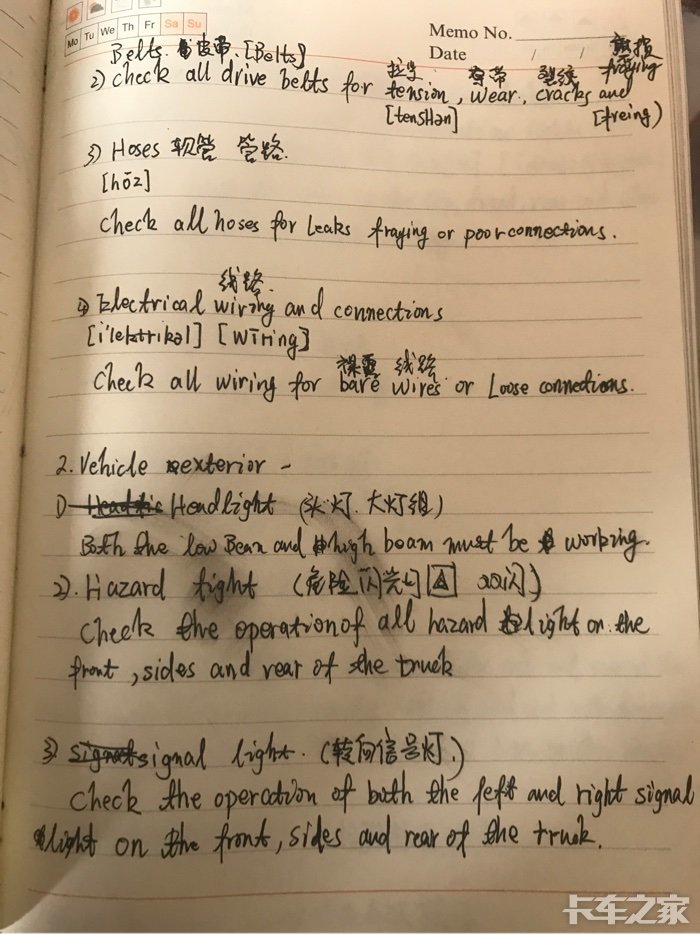 Mo Tu We Th Fr Sa Su
Memo No.
Date / /
Belts 皮带 [Belts]
拉紧 裂纹 磨损
2) Check all drive belts for tension, wear, cracks and fraying
[tenSHən] [freing)
3) Hoses 软管 管路.
[hōz]
Check all hoses for leaks fraying or poor connections.
线路.
4) Electrical wiring and connections
[i'lektrikəl] [wīring]
裸露 线路
Check all wiring for bare wires or Loose connections.
2. Vehicle exterior -
1) Headlight (头灯. 大灯组)
Both the low Bean and high beam must be working.
2). Hazard tight (危险闪光灯 双闪)
Check the operation of all hazard light on the
front, sides and rear of the truck
3) signal light. (转向信号灯.)
Check the operation of both the left and right signal
light on the front, sides and rear of the truck.
卡车之家